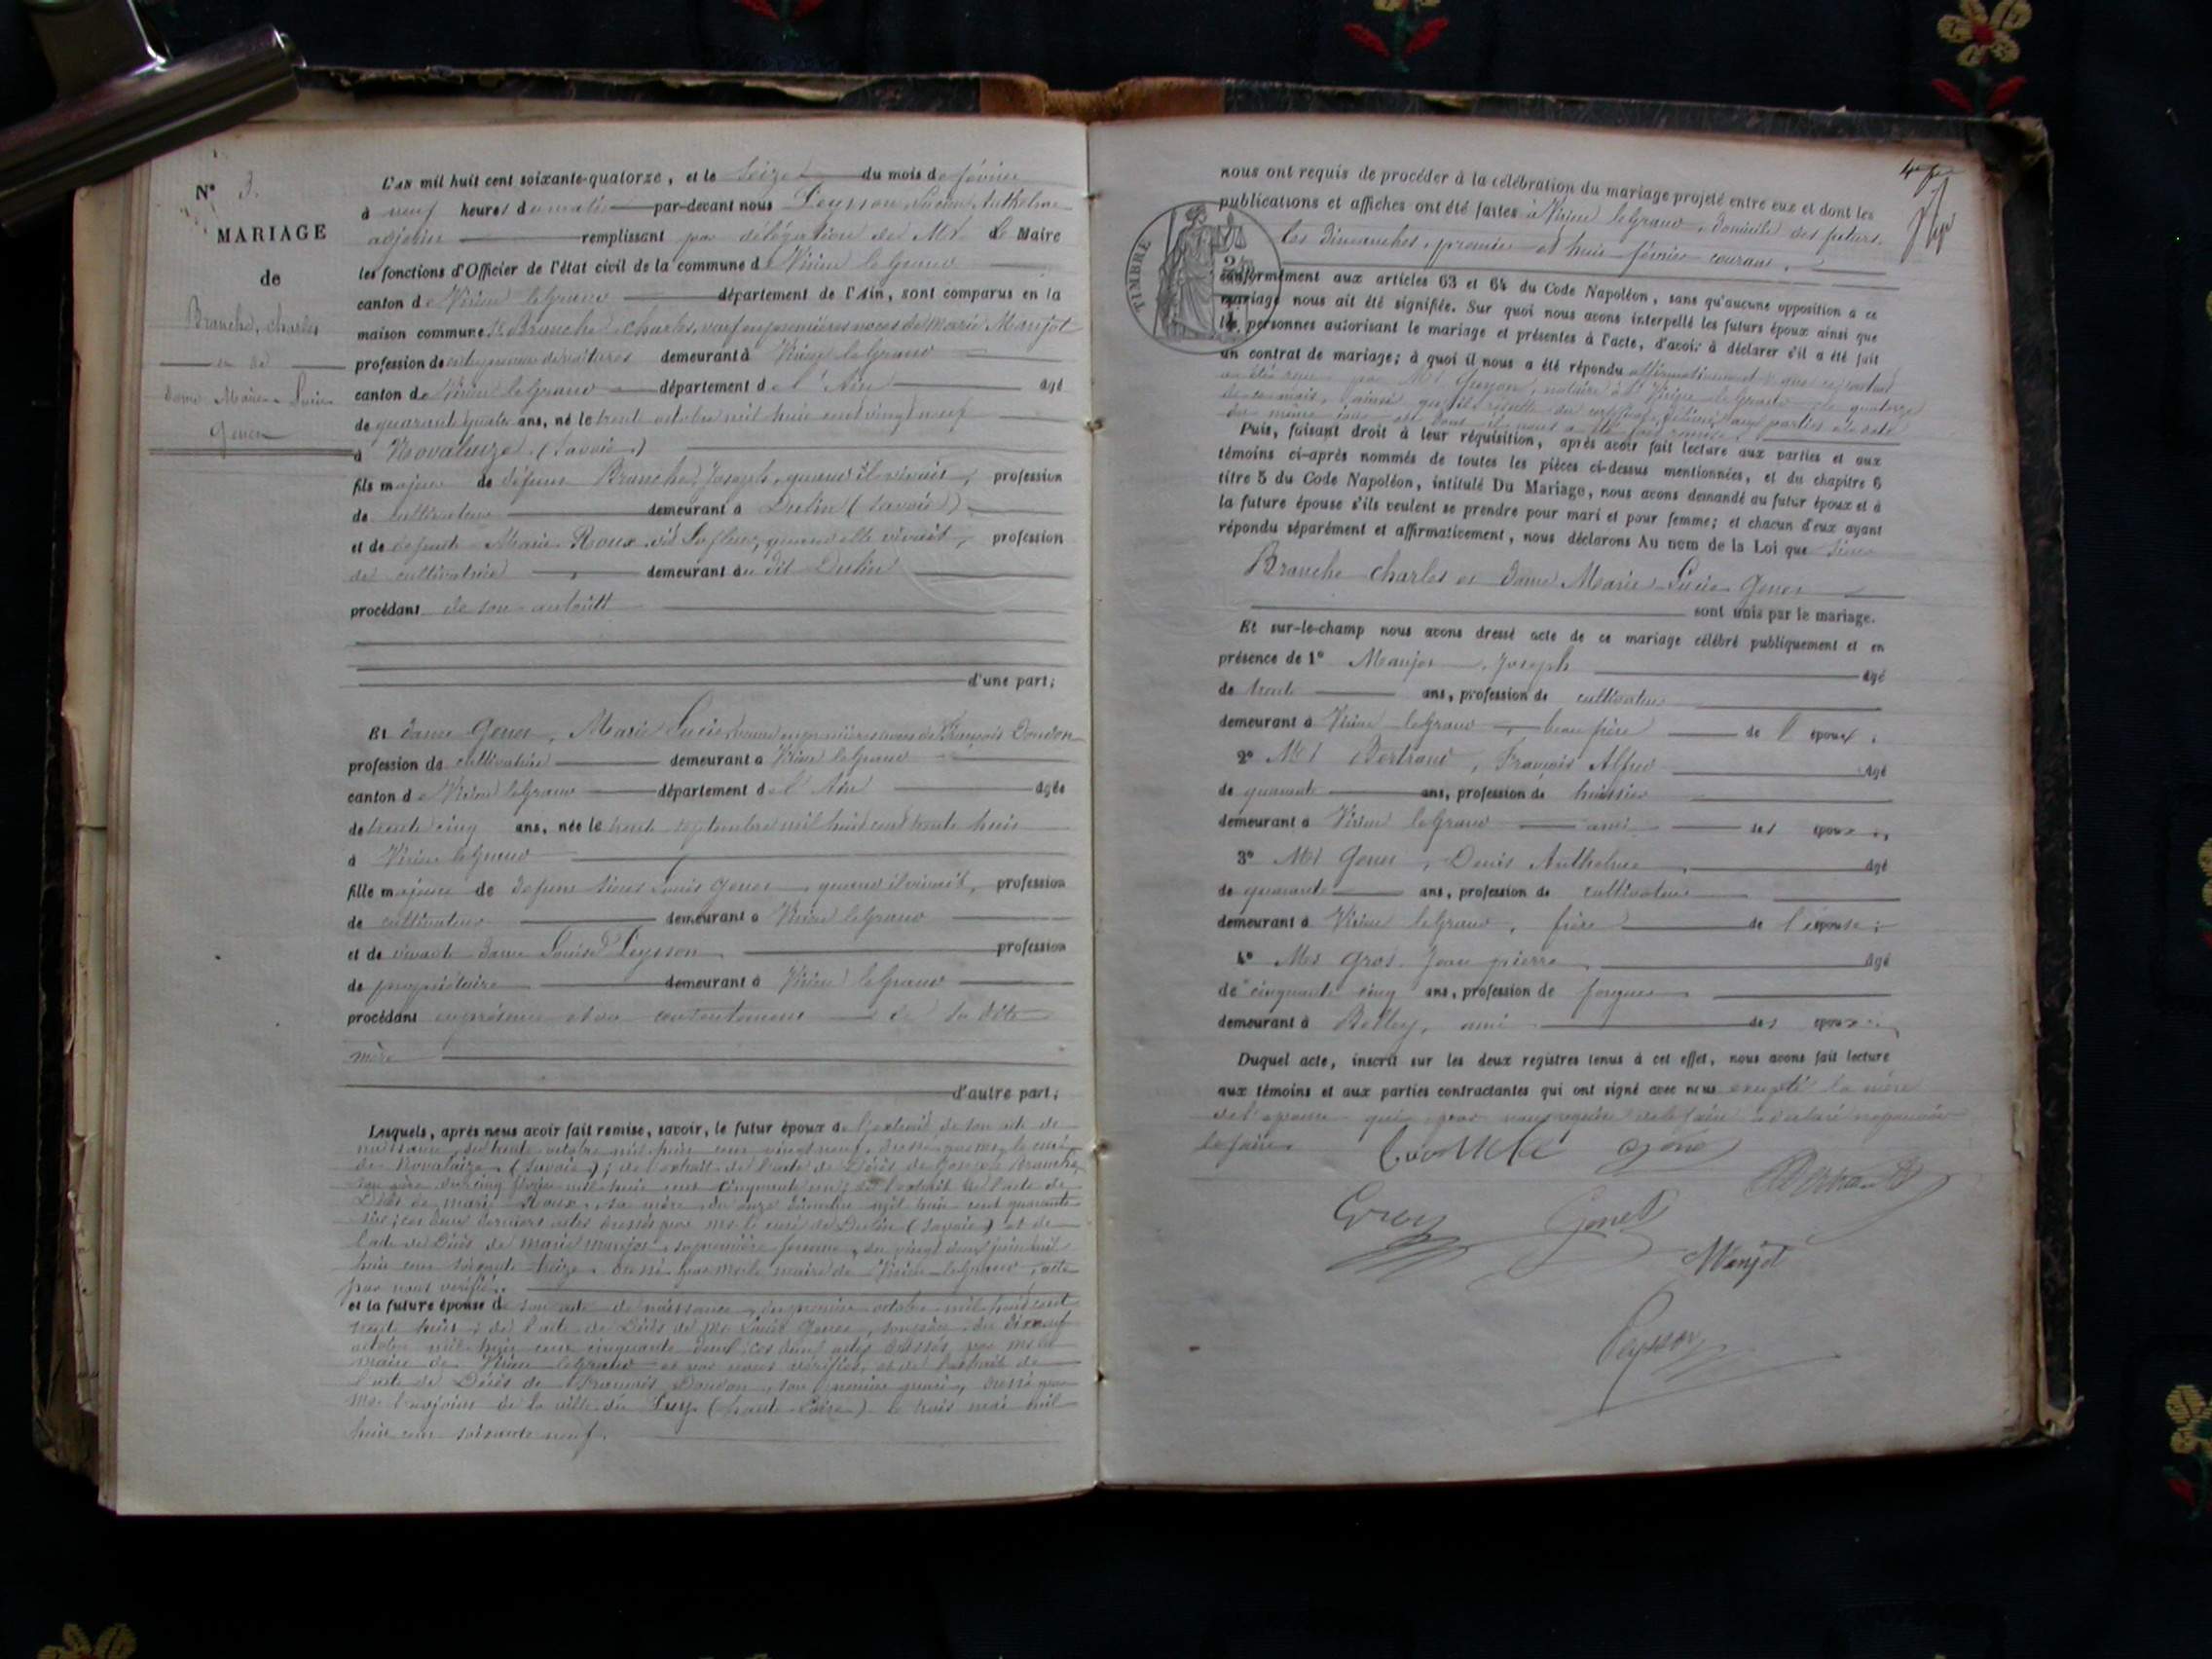 N° 3.
MARIAGE
de
Branche, charles
et de
dame Marie Lucie
Gonet
L'AN mil huit cent soixante-quatorze, et le seize du mois de février
à neuf heures du matin par-devant nous Peysson Anthelme
adjoint remplissant par délégation de Mr le Maire
les fonctions d'Officier de l'état civil de la commune de Virieu leGrand
canton de Virieu leGrand département de l'Ain, sont comparus en la
maison commune Sr Branche charles, veuf en premières noces de Marie Manjot
profession de demeurant à Virieu leGrand
canton de Virieu leGrand département de l'Ain âgé
de quarante quatre ans, né le trente octobre mil huit cent vingt neuf
à Novalaize (Savoie)
fils majeur de défunt Branche Joseph, quand il vivait, profession
de cultivateur demeurant à Dulin (Savoie)
et de défunte Marie Roux quand elle vivait, profession
de cultivatrice demeurant au dit Dulin
procédant de son autorité
d'une part;
Et dame Gonet, Marie Lucie, veuve en premières noces de François Doudon
profession de cultivatrice demeurant à Virieu leGrand
canton de Virieu leGrand département de l'Ain âgée
de trente cinq ans, née le trente septembre mil huit cent trente huit
à Virieu leGrand
fille majeure de défunt sieur Louis Gonet quand il vivait, profession
de cultivateur demeurant à Virieu leGrand
et de vivante dame Louise Peysson profession
de propriétaire demeurant à Virieu leGrand
procédant en présence et du consentement de sa dite
mère
d'autre part;
Lesquels, après nous avoir fait remise, savoir, le futur époux de l'extrait de son acte de
naissance, du trente octobre mil huit cent vingt neuf, dressé par Mr le curé
de Novalaize (Savoie); de l'extrait de l'acte de Décès de Joseph Branche
son père, du cinq février mil huit cent cinquante un; de l'extrait de l'acte de
Décès de Marie Roux, sa mère, du onze décembre mil huit cent quarante
six; ces deux derniers actes dressés par Mr le curé de Dulin (Savoie) et de
l'acte de Décès de Marie Manjot sa première femme, du vingt deux juin mil
huit cent soixante treize dressé par Mr le maire de Virieu leGrand, acte
par nous vérifié.
et la future épouse de son acte de naissance, du premier octobre mil huit cent
trente huit; de l'acte de Décès de Mr Louis Gonet, son père, du dix neuf
octobre mil huit cent cinquante deux; ces deux actes dressés par Mr le
maire de Virieu leGrand et par nous vérifiés, et de l'extrait de
l'acte de Décès de François Doudon, son premier mari, dressé par
Mr l'adjoint de la ville du Puy (haute Loire) le trois mai mil
huit cent soixante neuf.
nous ont requis de procéder à la célébration du mariage projeté entre eux et dont les
publications et affiches ont été faites à Virieu leGrand, domicile des futurs
les dimanches, premier et huit février courant.
TIMBRE
conformément aux articles 63 et 64 du Code Napoléon, sans qu'aucune opposition à ce
mariage nous ait été signifiée. Sur quoi nous avons interpellé les futurs époux ainsi que
les personnes autorisant le mariage et présentes à l'acte, d'avoir à déclarer s'il a été fait
un contrat de mariage; à quoi il nous a été répondu affirmativement que ce contrat
a été reçu par Me Guyon, notaire à Virieu leGrand le quatorze
de ce mois, ainsi qu'il résulte du certificat délivré aux parties à la date
du même jour et dont il nous a été fait remise.
Puis, faisant droit à leur réquisition, après avoir fait lecture aux parties et aux
témoins ci-après nommés de toutes les pièces ci-dessus mentionnées, et du chapitre 6
titre 5 du Code Napoléon, intitulé Du Mariage, nous avons demandé au futur époux et à
la future épouse s'ils veulent se prendre pour mari et pour femme; et chacun d'eux ayant
répondu séparément et affirmativement, nous déclarons Au nom de la Loi que sieur
Branche charles et Dame Marie Lucie Gonet
sont unis par le mariage.
Et sur-le-champ nous avons dressé acte de ce mariage célébré publiquement et en
présence de 1° Manjot, Joseph âgé
de trente ans, profession de cultivateur
demeurant à Virieu leGrand, beau frère de l'époux;
2° Mr Bertrand, François Alfred âgé
de quarante ans, profession de huissier
demeurant à Virieu leGrand ami des époux,
3° Mr Gonet, Denis Anthelme âgé
de quarante ans, profession de cultivateur
demeurant à Virieu leGrand, frère de l'épouse;
4° Mr Gros Jean pierre âgé
de cinquante cinq ans, profession de
demeurant à Belley, ami des époux
Duquel acte, inscrit sur les deux registres tenus à cet effet, nous avons fait lecture
aux témoins et aux parties contractantes qui ont signé avec nous excepté la mère
de l'épouse qui, par nous requise de le faire a déclaré ne pouvoir
le faire.
Gonet
Bertrand
Gros Gonet
Manjot
Peysson